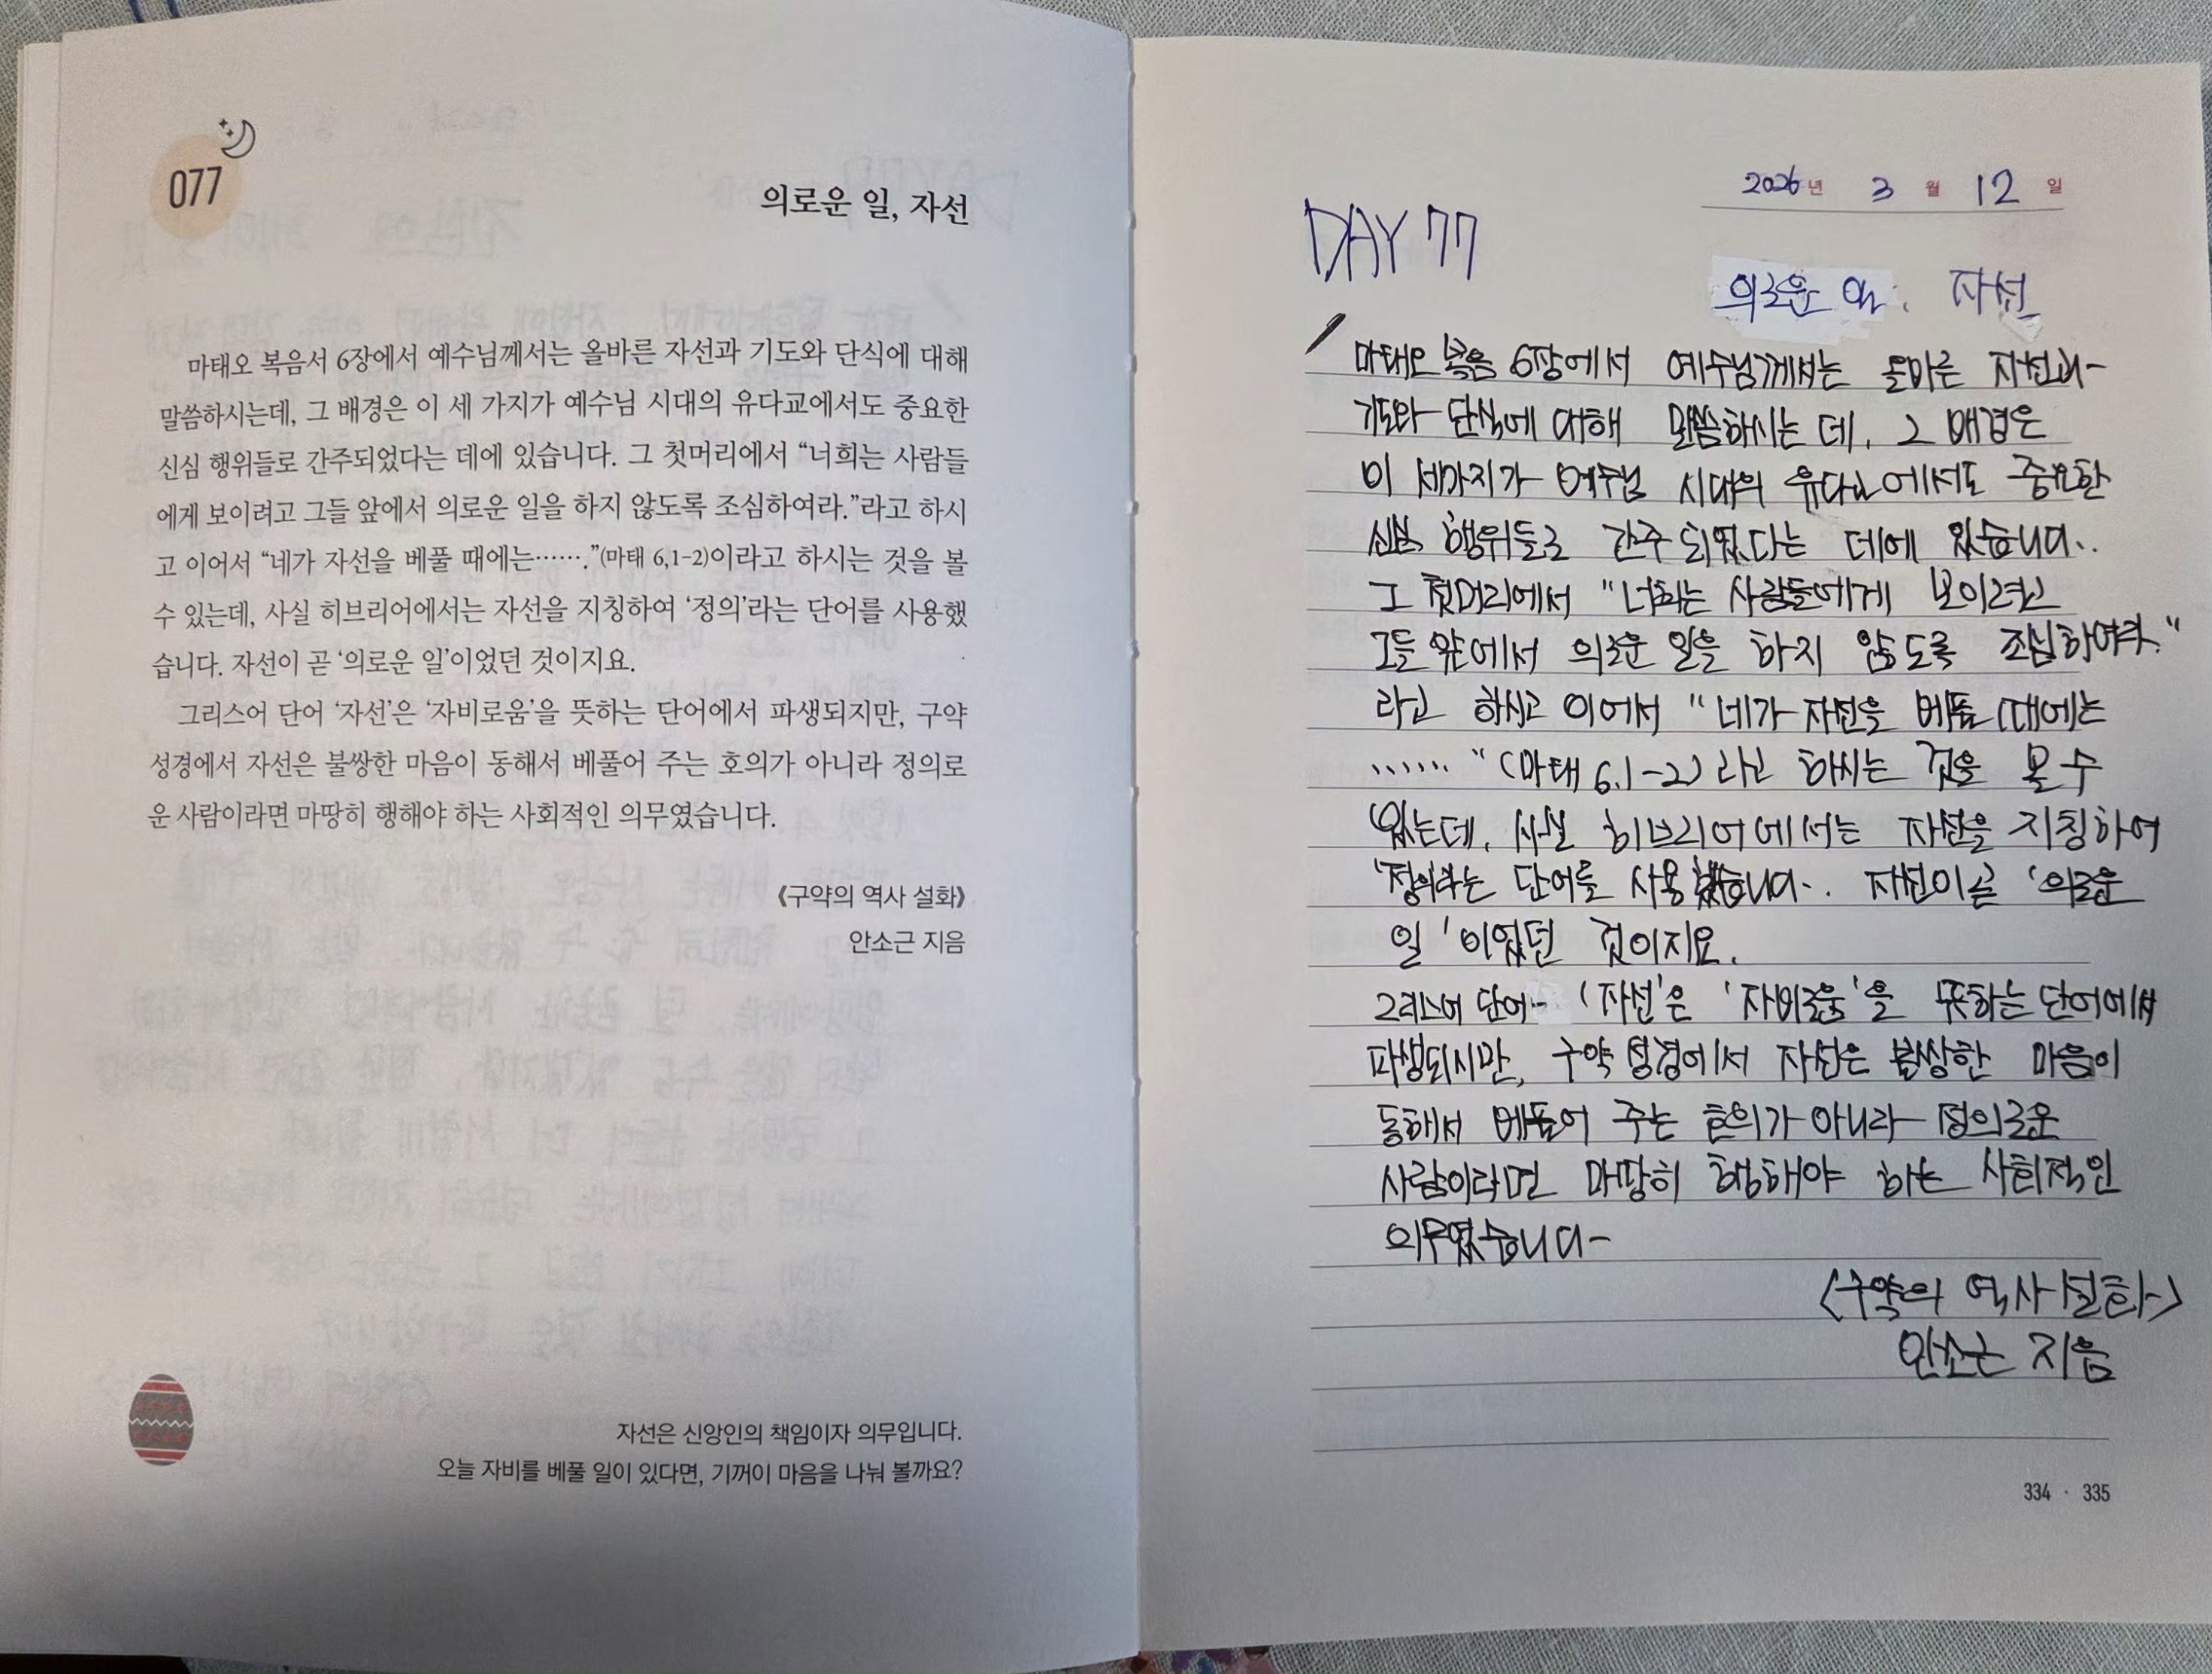 077
의로운 일, 자선
마태오 복음서 6장에서 예수님께서는 올바른 자선과 기도와 단식에 대해
말씀하시는데, 그 배경은 이 세 가지가 예수님 시대의 유다교에서도 중요한
신심 행위들로 간주되었다는 데에 있습니다. 그 첫머리에서 “너희는 사람들
에게 보이려고 그들 앞에서 의로운 일을 하지 않도록 조심하여라.”라고 하시
고 이어서 “네가 자선을 베풀 때에는…….”(마태 6,1-2)이라고 하시는 것을 볼
수 있는데, 사실 히브리어에서는 자선을 지칭하여 ‘정의’라는 단어를 사용했
습니다. 자선이 곧 ‘의로운 일’이었던 것이지요.
그리스어 단어 ‘자선’은 ‘자비로움’을 뜻하는 단어에서 파생되지만, 구약
성경에서 자선은 불쌍한 마음이 동해서 베풀어 주는 호의가 아니라 정의로
운 사람이라면 마땅히 행해야 하는 사회적인 의무였습니다.
《구약의 역사 설화》
안소근 지음
자선은 신앙인의 책임이자 의무입니다.
오늘 자비를 베풀 일이 있다면, 기꺼이 마음을 나눠 볼까요?
2026년 3월 12일
DAY 77
의로운 일. 자선
마태오 복음 6장에서 예수님께서는 올바른 자선과
기도와 단식에 대해 말씀하시는 데, 그 배경은
이 세가지가 예수님 시대의 유다교에서도 중요한
신심 행위들로 간주되었다는 데에 있습니다.
그 첫머리에서 “너희는 사람들에게 보이려고
그들 앞에서 의로운 일을 하지 않도록 조심하여라."
라고 하시고 이어서 "네가 자선을 베풀 때에는
...... "(마태 6.1-2)라고 하시는 것을 볼 수
있는데, 사실 히브리어에서는 자선을 지칭하여
'정의'라는 단어를 사용했습니다. 자선이 곧 '의로운
일'이었던 것이지요.
그리스어 단어 '자선'은 '자비로움'을 뜻하는 단어에서
파생되시만, 구약 성경에서 자선은 불쌍한 마음이
동해서 베풀어 주는 호의가 아니라 정의로운
사람이라면 마땅히 행해야 하는 사회적인
의무였습니다
<구약의 역사 설화>
안소근 지음
334 · 335